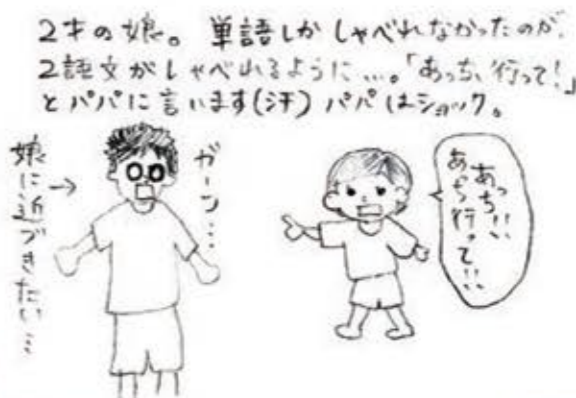 2才の娘。単語しかしゃべれなかったのが、
2語文がしゃべれるように…。「あっち、行って!」
とパパに言います(汗) パパはショック。
娘に近づきたい…
→
ガーン…
あっち!!
あっち行って!!